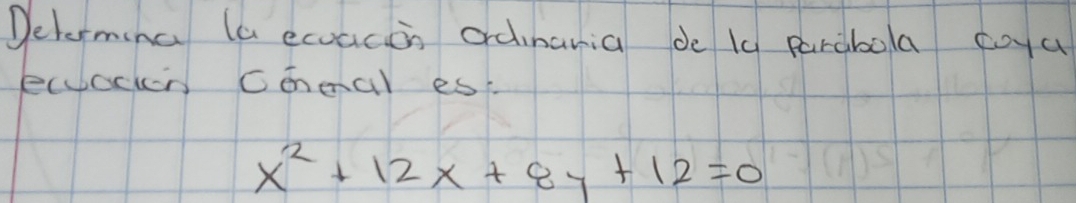 Determina la ecuación ordinaria de la parábola cuya
ecuación General es:
x² + 12x + 8y + 12 = 0